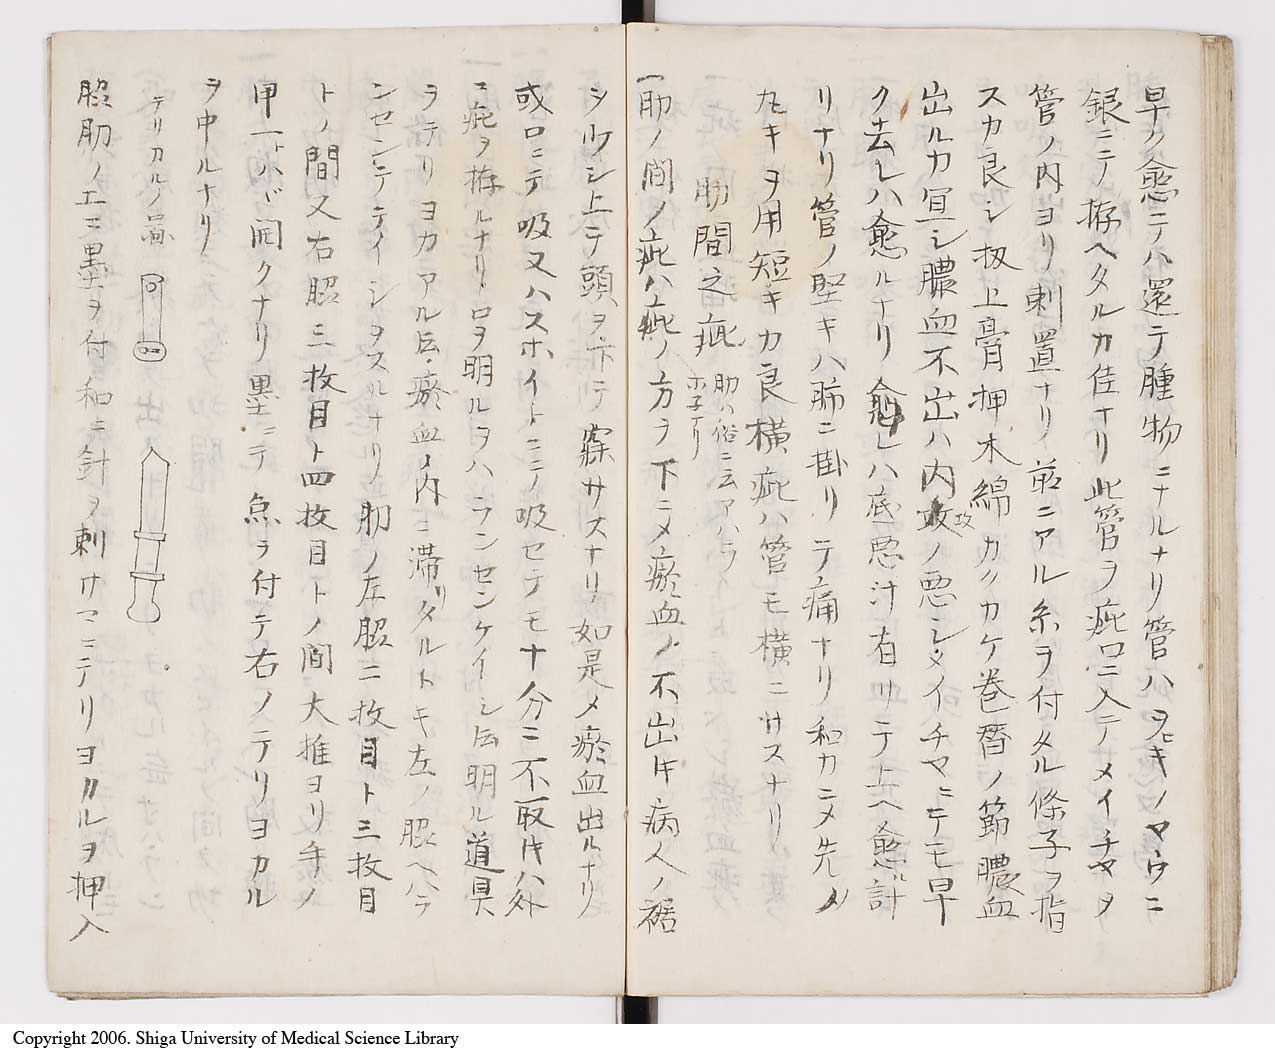 早ク愈ニテハ還テ腫物ニナルナリ管ハヲヒキノマウニ
銀ニテ拵ヘタルカ佳ナリ此管ヲ疵口ニ入テサメイチヤヲ
管ノ内ヨリ刺置ナリ前ニアル糸ヲ付タル條子ヲ指
スカ良シ扨上膏押木綿カクカケ巻暦ノ節膿血
出ルカ宜シ膿血不出ハ内攻攻ノ悪シメイチマニテモ早
ク去レハ愈ルナリ愈レハ底悪汁有リテ上ヘ愈ル計
リナリ管ノ堅キハ肺ニ掛リテ痛ナリ和カニメ先
丸キヲ用短キカ良横疵ハ管モ横ニサスナリ
肋間之疵 肋ハ俗ニ云アハラ
ホ子ナリ
一肋ノ間ノ疵ハ疵ノ方ヲ下ニメ瘀血ノ不出片病人ノ裾
ヲ少シ上テ頭ヲ下テ寐サスナリ如是メ瘀血出ルナリ
或口ニテ吸又ハスホイトニテ吸セテモ十分ニ不取片ハ外
ニ疵ヲ拵ルナリ口ヲ明ルヲハランセンケイシ云明ル道具
ヲテリヨカアル云瘀血ノ内ニ滞リタルトキ左ノ脇ヘハラ
ンセンテイシヲスルナリ肋ノ左脇二枚目ト三枚目
トノ間又右脇三枚目ト四枚目トノ間大推ヨリ手ノ
甲一ハ開クナリ墨ニテ点ヲ付テ右ノテリヨカル
ヲ中ルナリ
テリカルノ圖
脇肋ノ上ニ墨ヲ付和ニ針ヲ刺サマニテリヨカルヲ押入